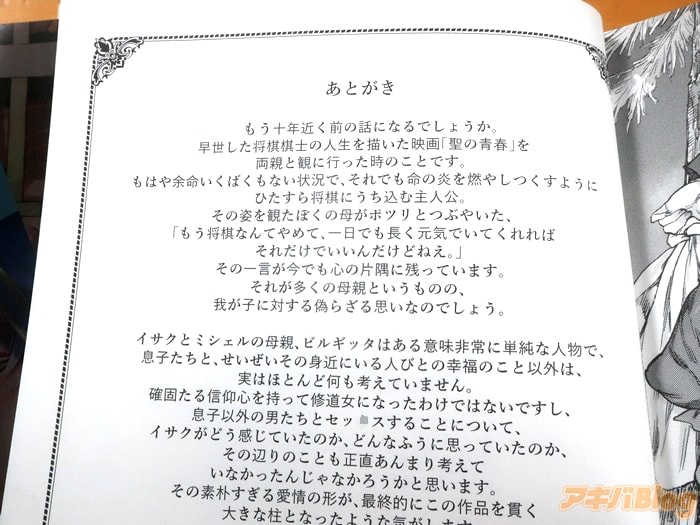 あとがき
もう十年近く前の話になるでしょうか。
早世した将棋棋士の人生を描いた映画「聖の青春」を
両親と観に行った時のことです。
もはや余命いくばくもない状況で、それでも命の炎を燃やしつくすように
ひたすら将棋にうち込む主人公。
その姿を観たぼくの母がポツリとつぶやいた、
「もう将棋なんてやめて、一日でも長く元気でいてくれれば
それだけでいいんだけどねえ。」
その一言が今でも心の片隅に残っています。
それが多くの母親というものの、
我が子に対する偽らざる思いなのでしょう。
イサクとミシェルの母親、ビルギッタはある意味非常に単純な人物で、
息子たちと、せいぜいその身近にいる人びとの幸福のこと以外は、
実はほとんど何も考えていません。
確固たる信仰心を持って修道女になったわけではないですし、
息子以外の男たちとセッ スすることについて、
イサクがどう感じていたのか、どんなふうに思っていたのか、
その辺りのことも正直あんまり考えて
いなかったんじゃなかろうかと思います。
その素朴すぎる愛情の形が、最終的にこの作品を貫く
大きな柱となったような気がします
アキバBlog